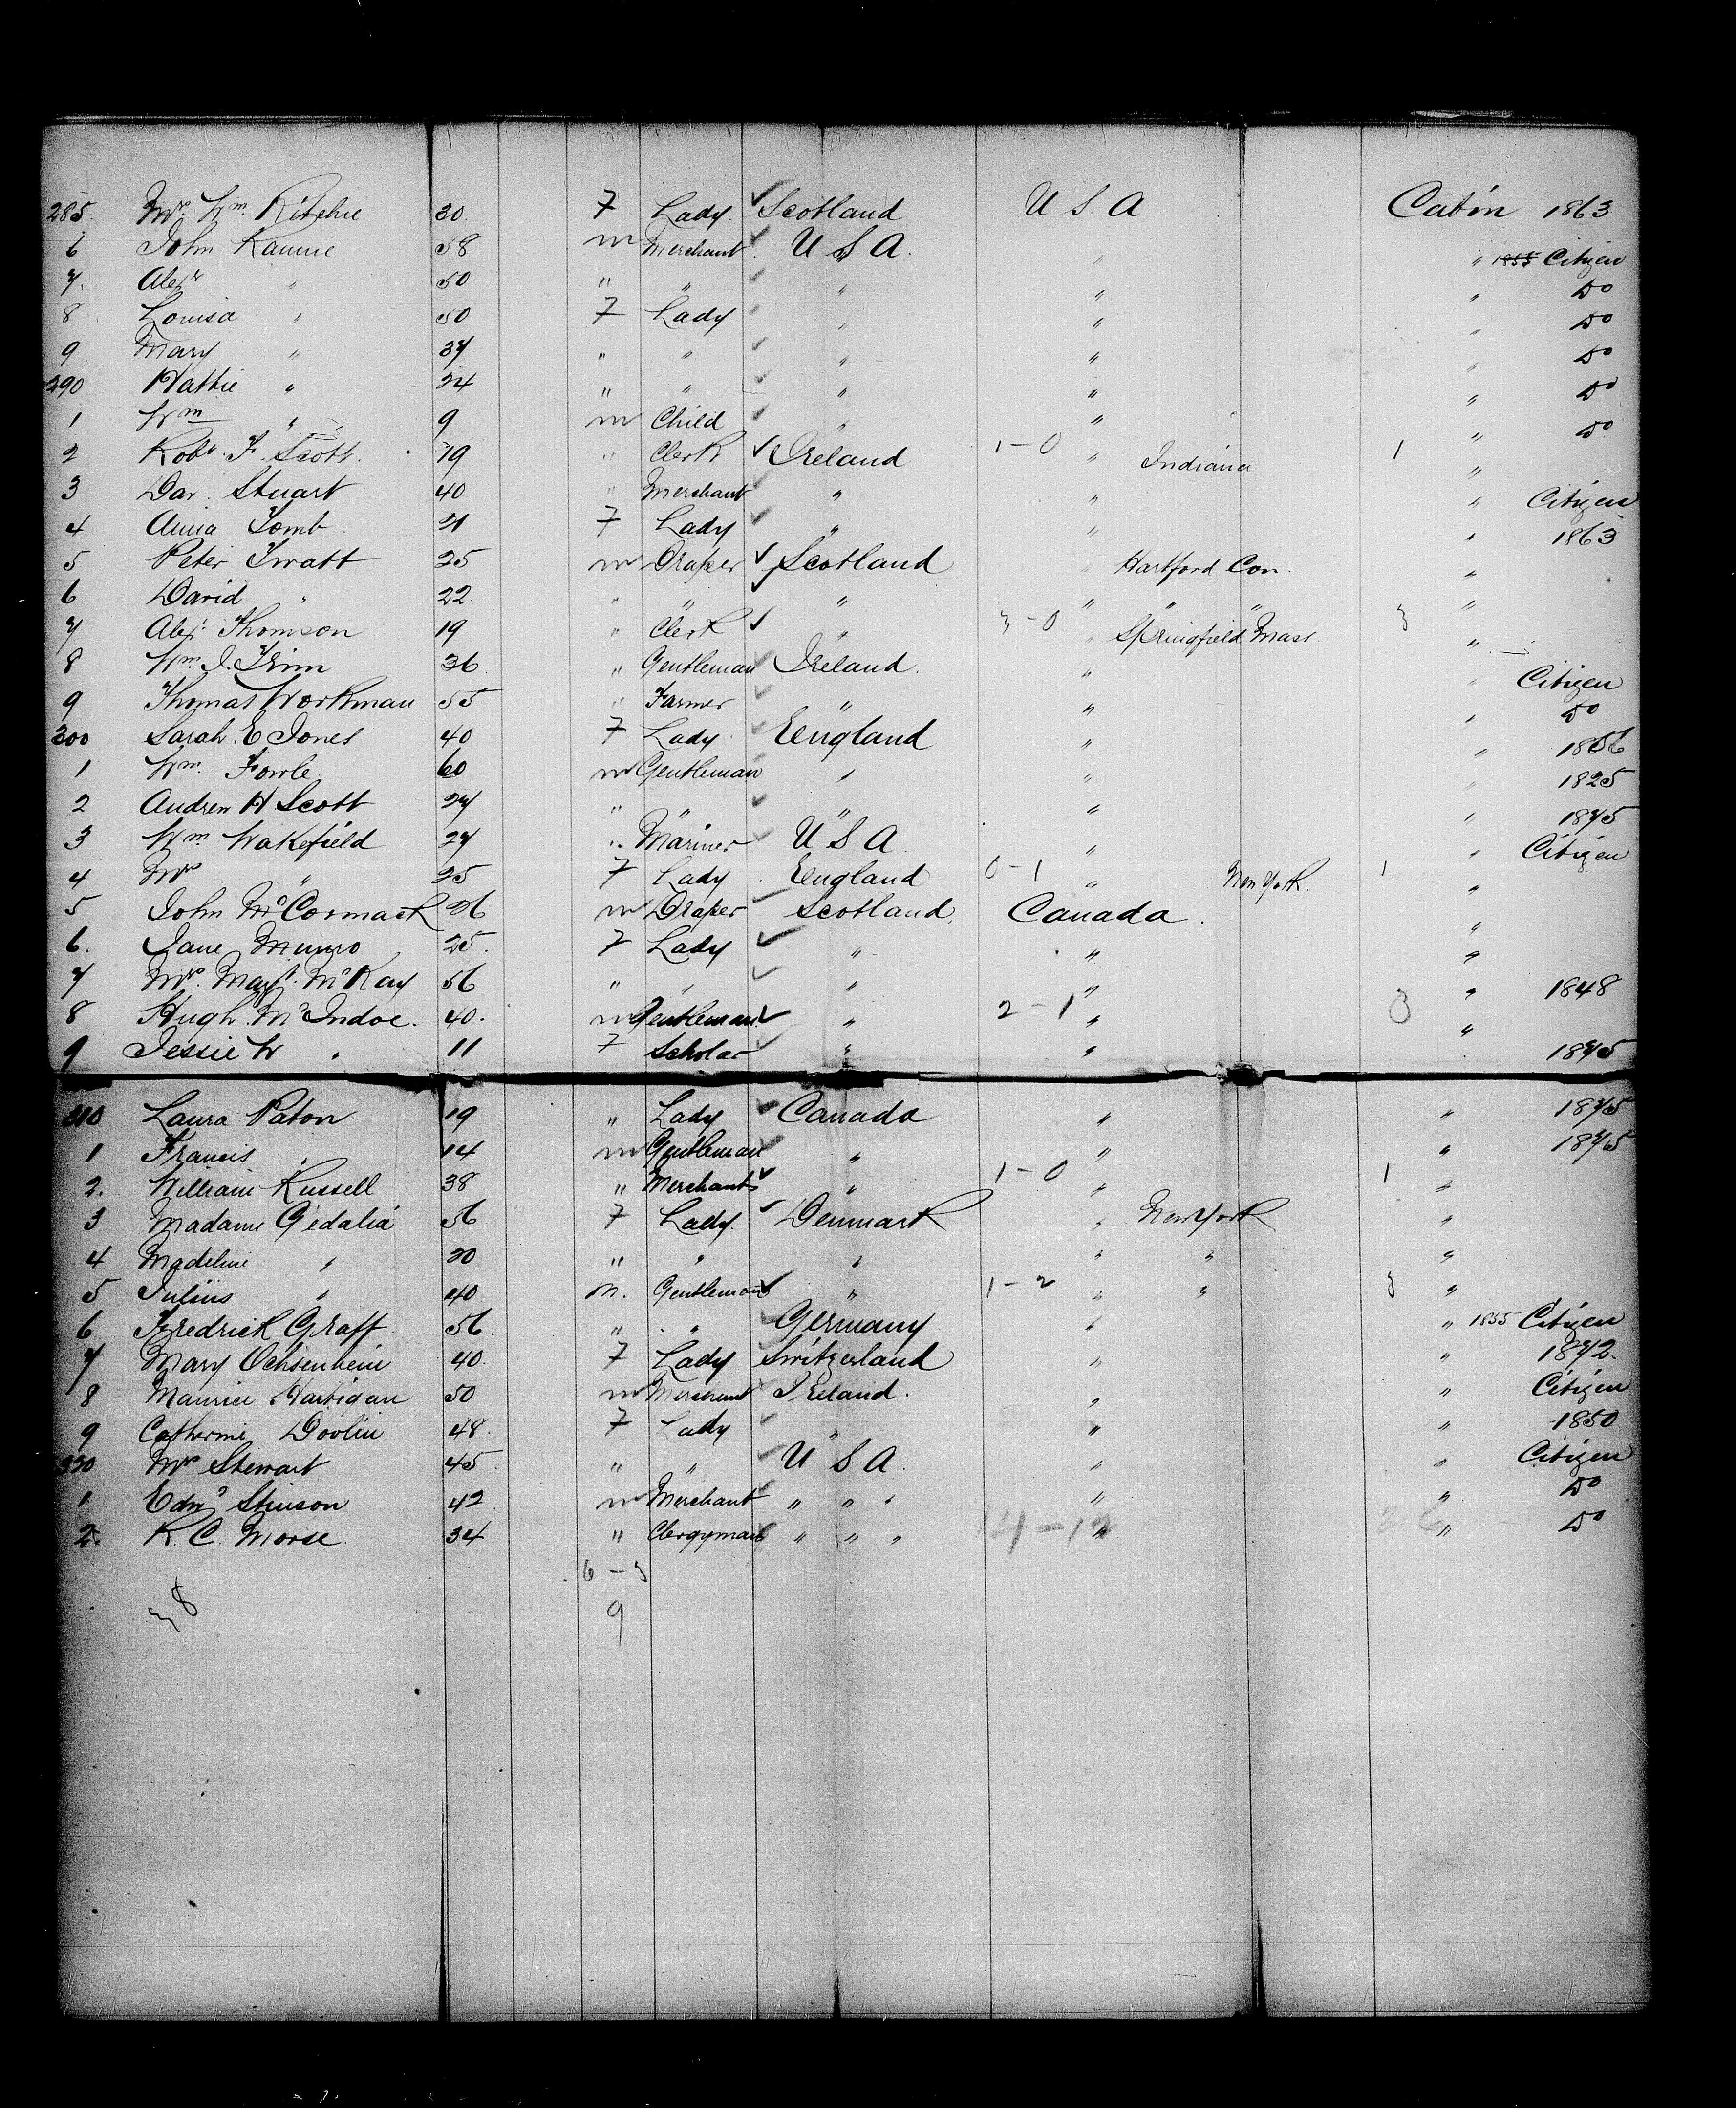 285. Mrs Wm. Ritchie 30. F Lady. Scotland U S. A Cabin 1863
6 John Rannie 58 m Merchant U S A. " " 1855 Citizen
7. Alexr " 50 " " " " " Do
8 Louisa " 50 F Lady " " " Do
9 Mary " 37 " " " " " Do
290 Hattie " 24 " " " " " Do
1 Wm " 9 m Child " " " Do
2 Robt. F. Scott. 19 " Clerk Ireland 1-0 " Indiana 1 "
3 Dav. Stuart 40 " Merchant " " " Citizen
4 Annie Tomb 21 F Lady " " " 1863
5 Peter Twatt 25 m Draper Scotland " Hartford Con. "
6 David " 22 " " " " " " "
7 Alexr. Thomson 19 " Clerk " 3-0 " Springfield Mass. 3 "
8 Wm. J. Trim 36. " Gentleman Ireland. " " Citizen
9 Thomas Workman 55 " Farmer " " " Do
300 Sarah. E Jones 40 F Lady. England " " 1856
1 Wm. Fowle 60 m Gentleman " " " 1825
2 Andrew H Scott 27 " " " " " 1875
3 Wm. Wakefield 27 " Mariner U S A. " " Citizen
4 Mrs " 25 F Lady England 0-1 " New York. 1 "
5 John McCormack 26 m Draper Scotland. Canada. "
6. Jane Munro 25. F Lady " " "
7 Mrs. Mayt. McKay 56 " " " " " 1848
8 Hugh. McIndoe. 40. m Gentleman " 2-1 " 3 "
9 Jessie W " 11 F Scholar " " " 1875
310 Laura Paton 19 " Lady Canada " " 1875
1 Francis " 14 m Gentleman " " " 1875
2. William Russell 38 " Merchant " 1-0 " 1 "
3 Madame Gedalia 56 F Lady. Denmark " New York "
4 Madeline " 30 " " " " " "
5 Julius " 40 m. Gentleman " 1-2 " " 3 "
6 Fredrick Graff. 56. " " Germany " " 1855 Citizen
7 Mary Ochsenbein 40. F Lady Switzerland " " 1872.
8 Maurice Hartigan 50 m Merchant Ireland. " " Citizen
9 Catherine Doolin 48. F Lady " " " 1850
320 Mrs Stewart 45. " " U S A. " " Citizen
1 Edwd Stinson 42 m Merchant " " " " " Do
2. R. C. Morse. 34 " Clergyman " " " 14-12 " 26 " Do
6-3
9
38